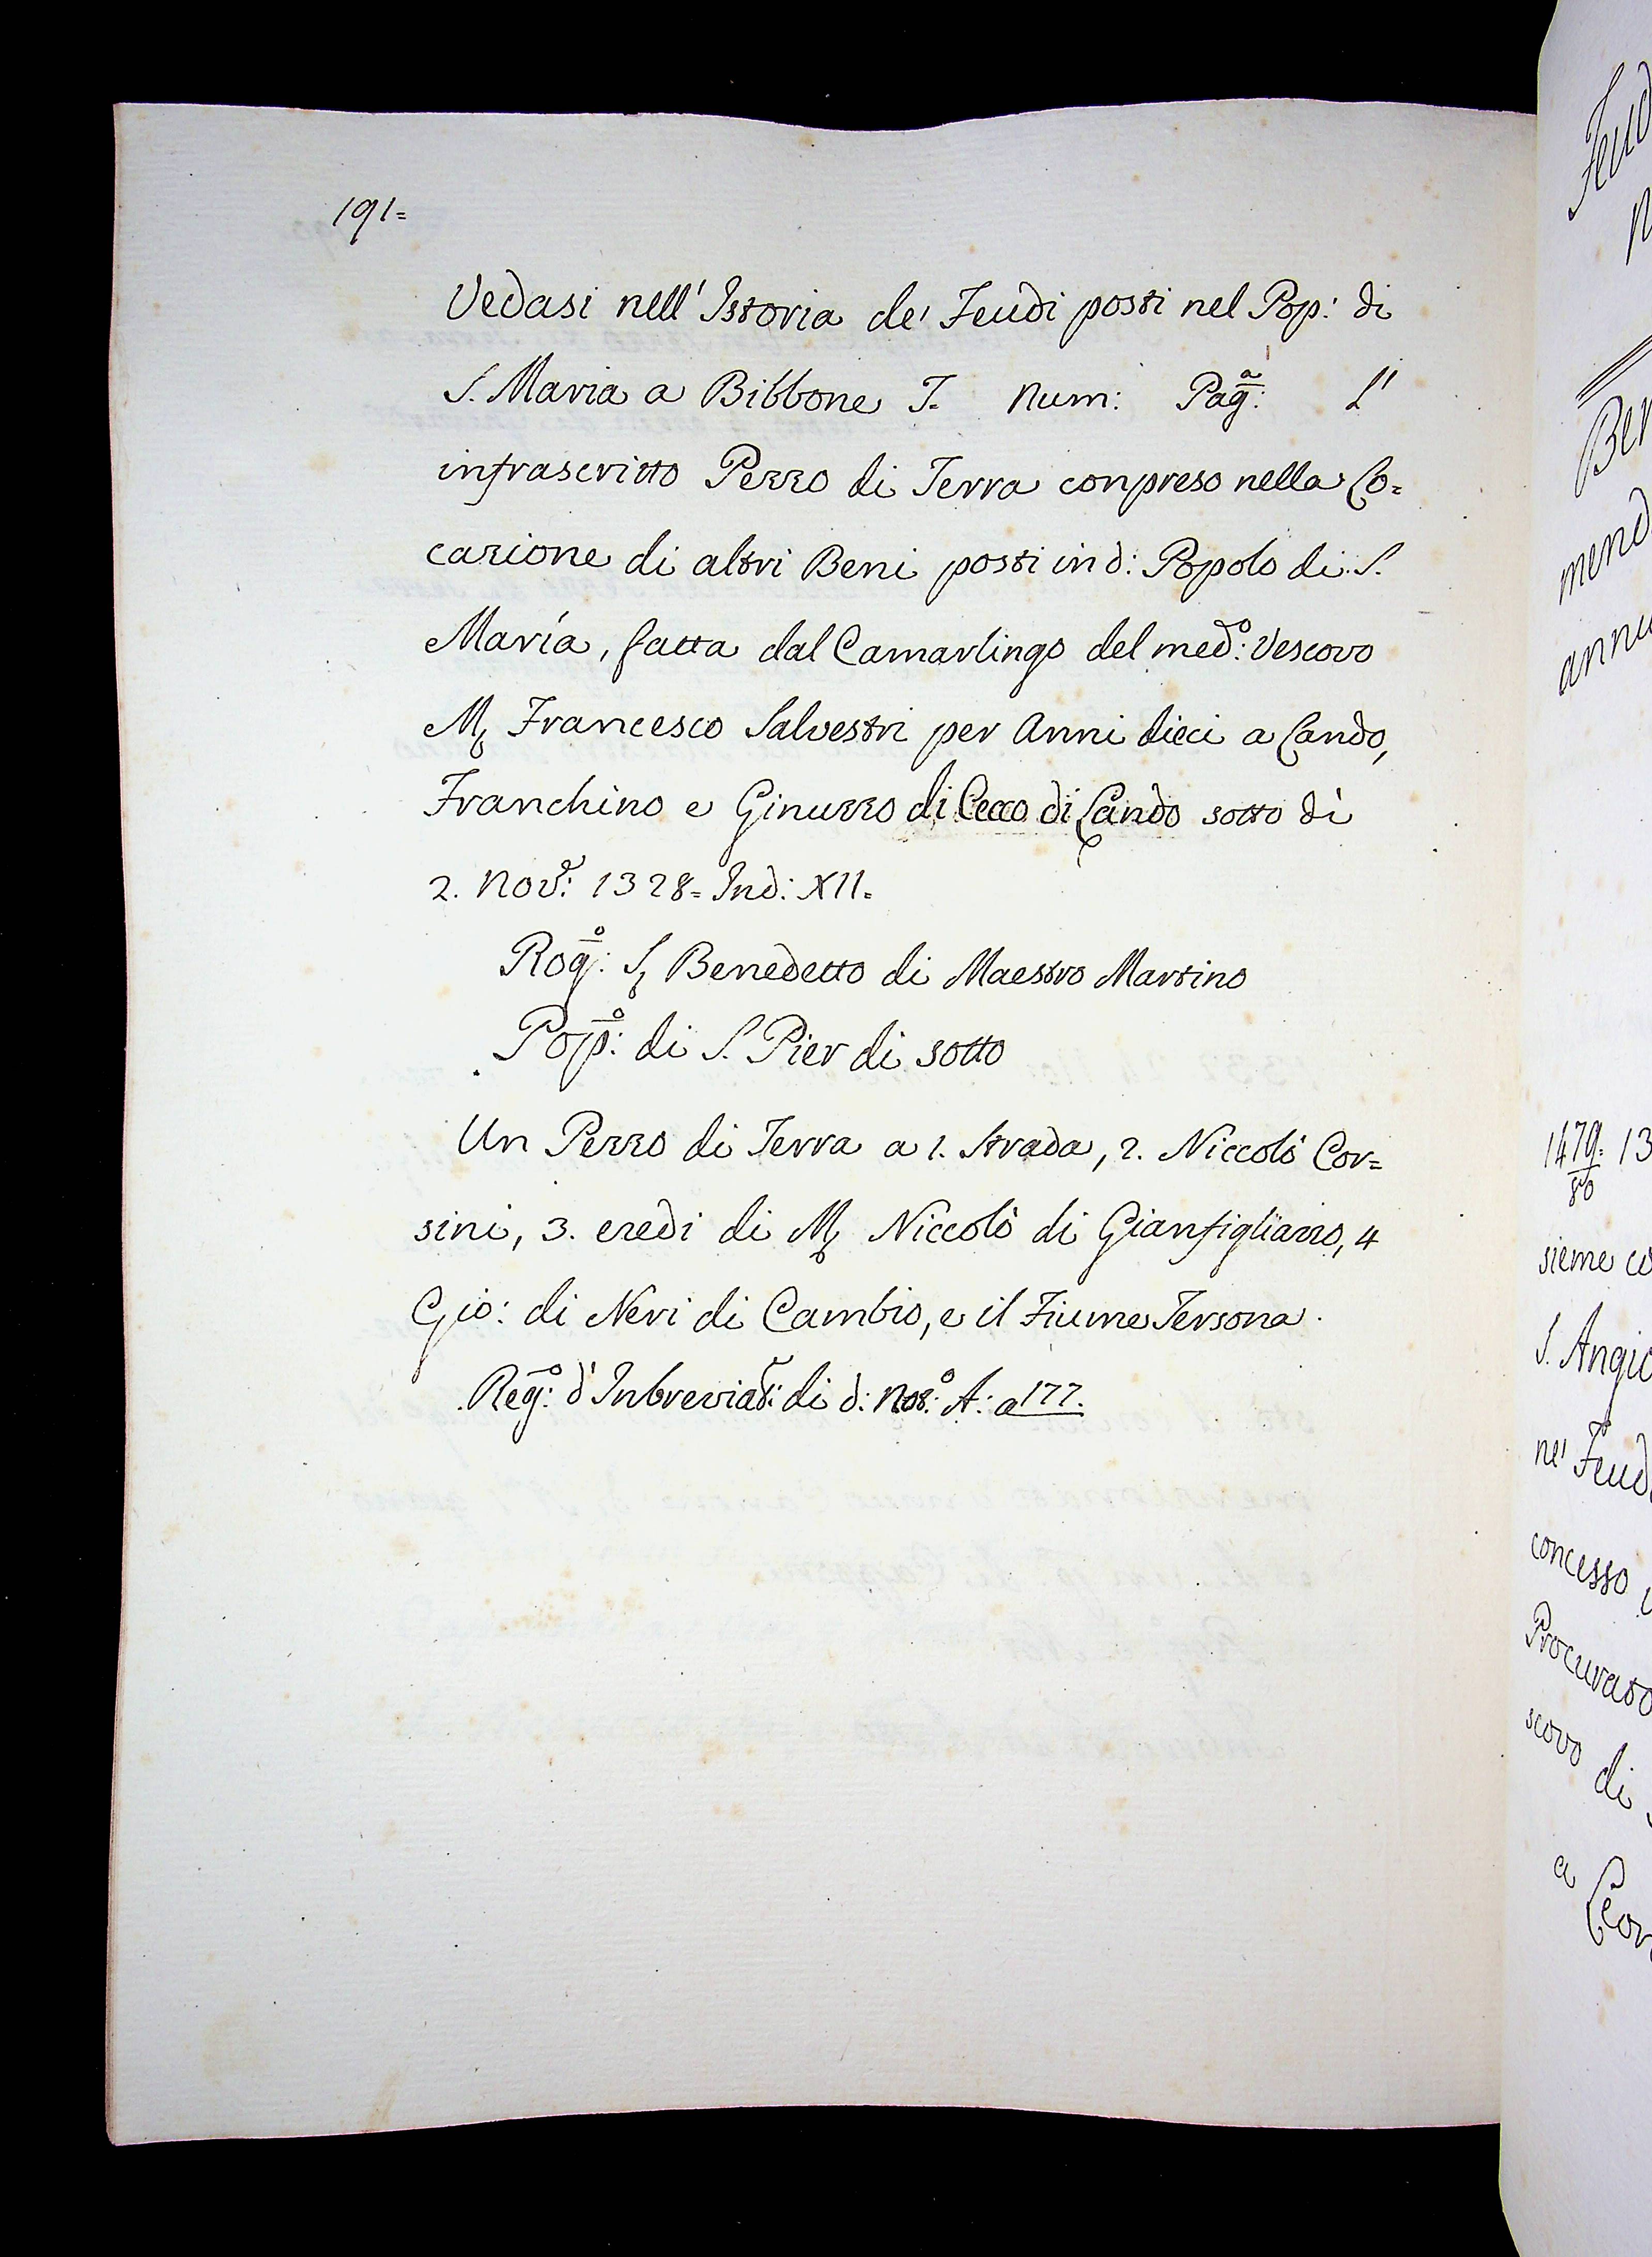 191=
Vedasi nell' Istoria de' Feudi posti nel Pop: di
S. Maria a Bibbone T. Num: Pag:ª L'
infrascritto Pezzo di Terra conpreso nella Lo=
cazione di altri Beni posti in d: Popolo di S.
Maria, fatta dal Camarlingo del med:º Vescovo
M. Francesco Salvestri per Anni dieci a Lando,
Franchino e Ginuzzo di Cecco di Lando sotto dì
2. Nov:e 1328= Ind: XII=
Rog:º S. Benedetto di Maestro Martino
Pop:º di S. Pier di sotto
Un Pezzo di Terra a 1. Strada, 2. Niccolò Cor=
sini, 3. eredi di M. Niccolò di Gianfigliazzo, 4
Gio: di Neri di Cambio, e il Fiume Tersona.
Reg:º d'Inbreviat:e di d: Not:º A: a 177.
Feud
Ben
mend
annu
1479: 13
80
sieme co
S. Angio
ne' Feud
concesso
Procurato
scovo di
a Leon